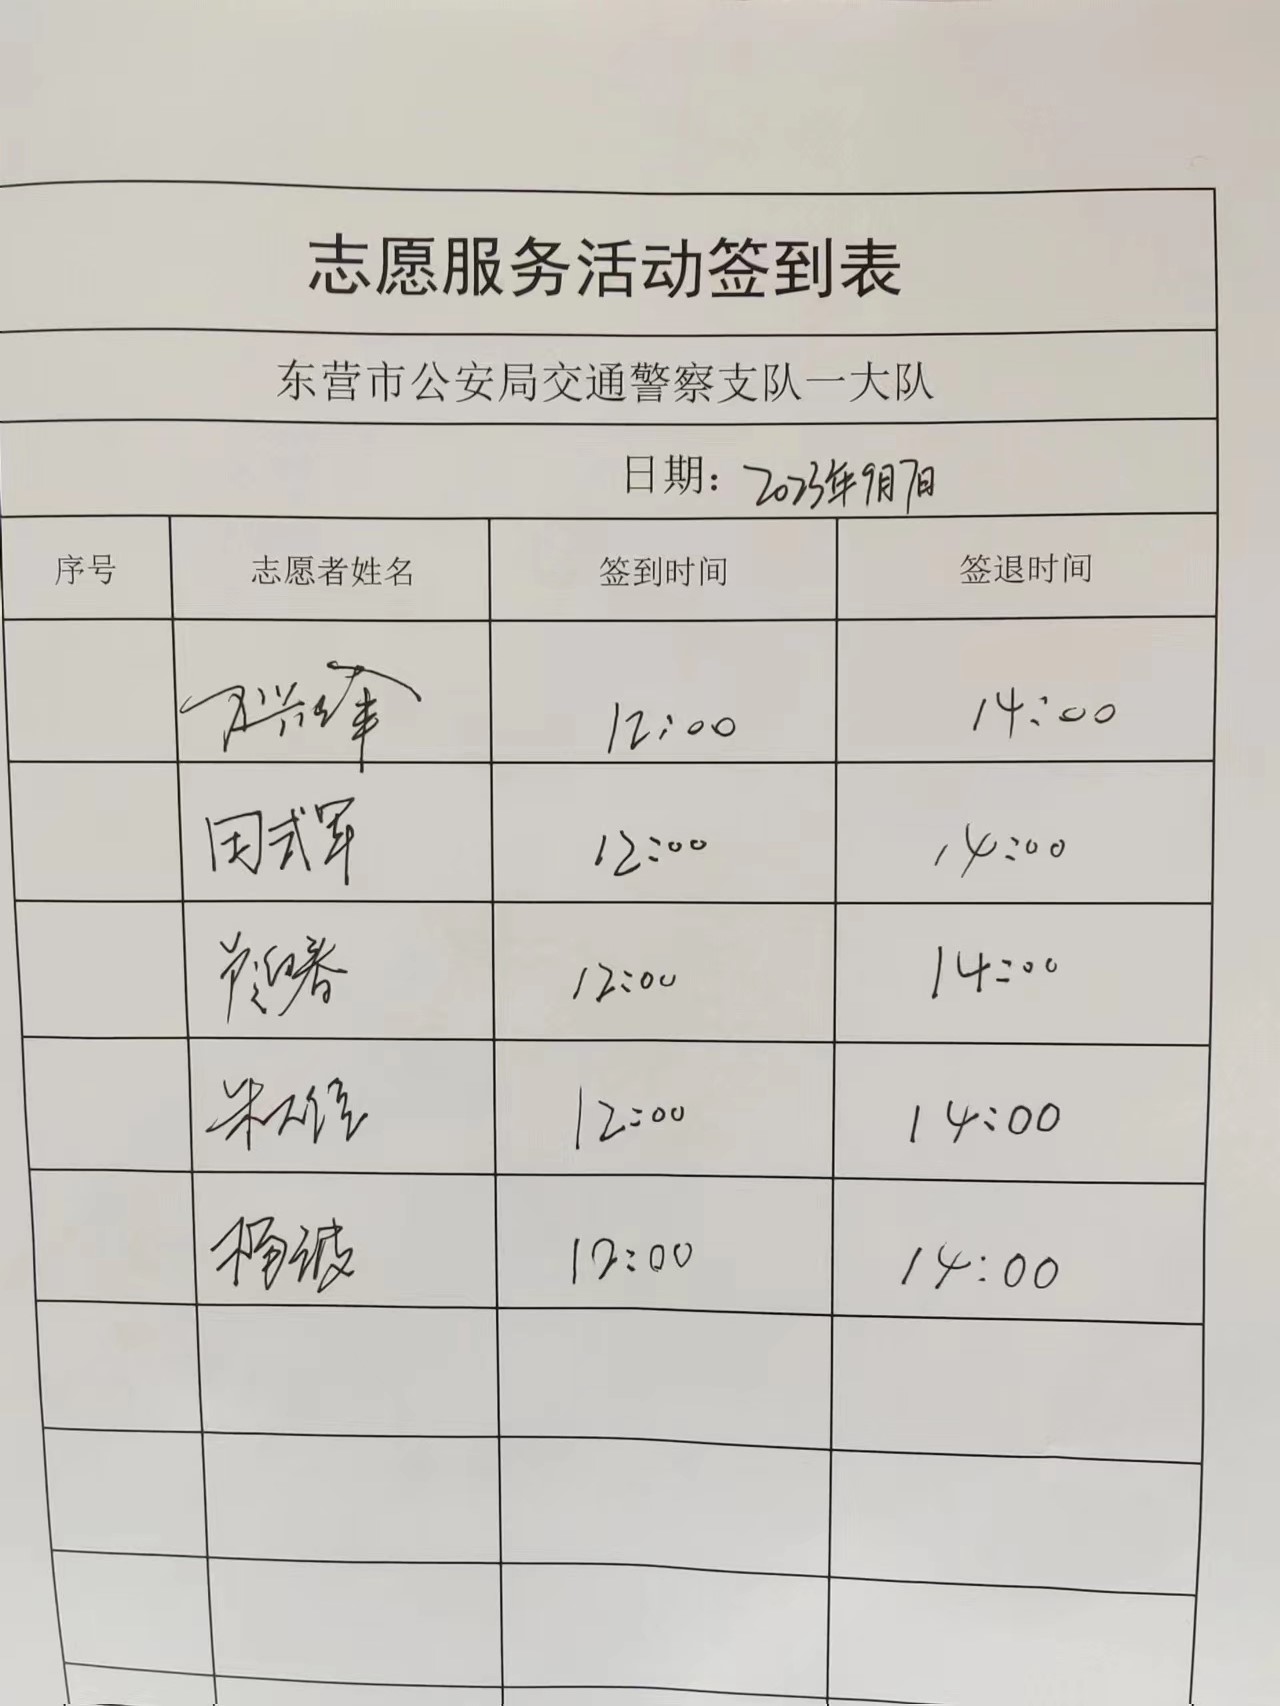 志愿服务活动签到表
东营市公安局交通警察支队一大队
日期：2023年9月7日
序号 志愿者姓名 签到时间 签退时间
12:00 14:00
田式军 12:00 14:00
迎春 12:00 14:00
12:00 14:00
杨诚 12:00 14:00